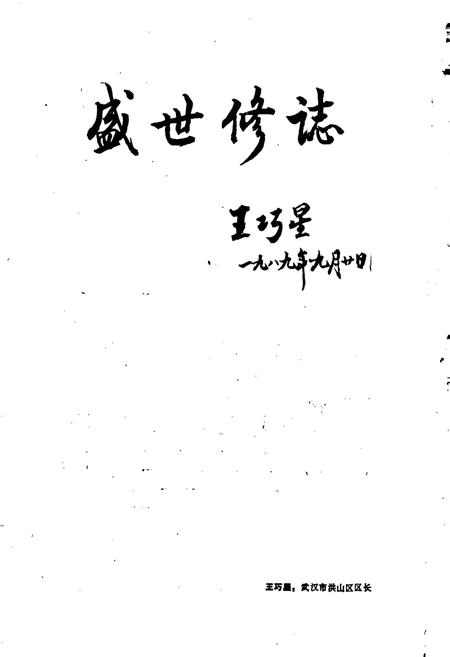 盛世修誌
王巧星
一九八九年九月廿日
王巧星：武汉市洪山区区长